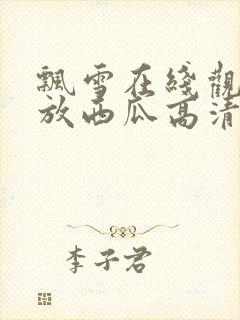 飄雪在綫觀
放西瓜高清
李子君